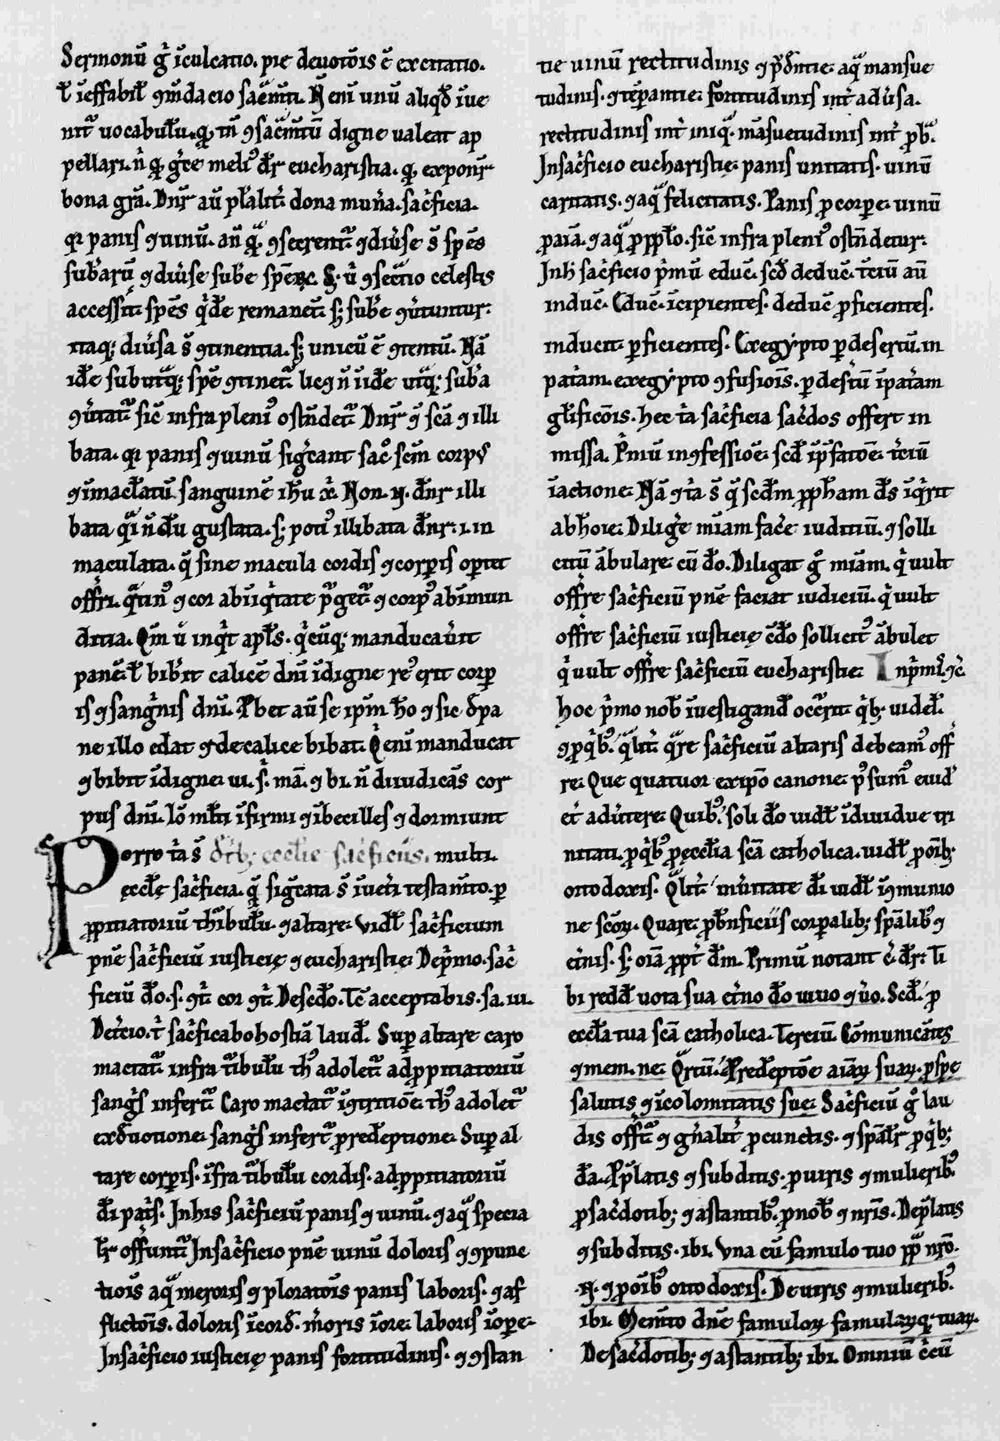 Sermonū gͥ ĩculcatio. pie deuot̄oīs ē excitatio.
ł ieffabił ꝯm̄dacio sac̄m̄ti. N̄ enī unū aliqd̄ īue
nit᷑ uocabłu. q̨ tñ ꝯsac̄m̄tū digne ualeat ap
pellari. n̄ q̨ gͥce meliꝰ dr̄ eucharistia. q̨ exponit᷑
bona gr̄a. Dn̄r aū pl̄alit̄ dona mun̄a. sac̓ficia.
qͥ panis ꝯuinū. añ qͣ ꝯsecrent᷑ ꝯdiūse s̄ sp̄es
sub̄arū ꝯdiūse sub̄e sp̄es. S; ū ꝯsec̄tio celestis
accesſit. sp̄es qͥde remanēt. s; sub̄e ꝯūtuntur.
itaq; diūsa s̄ ꝯtinentia. s; unicū ē ꝯtentū. Nā
idē sub utͣq; spē ꝯtinet᷑ lic; n̄ iīdē utͥq; sub̄a
ꝯūtat᷑ sic̄ infra pleniꝰ ostn̄det᷑. Dn̄r ꝯ̄ sc̄a ꝯ illi
bata. qͥ panis ꝯ uinū sigͥcant sac̓ sc̄m corpꝰ
ꝯ imaclatū sanguinē ih̄u x̄. Non. n̄. dn̄r illi
bata qͣi n̄dū gustata. s; potiꝰ illibata dn̄r. i. in
maculata. qͣ sine macula cordis ꝯ corꝑis oportet
offr̄i. qͣtinꝰ ꝯ cor ab iniqͥtate p̄get᷑ ꝯ corpꝰ ab īmun
ditia. Qm̄ ū inqͥt apłs. qͥcūq; manducaūit
panē. ł bib̄it calicē dn̄i īdigne reꝰ erit corꝑ
is ꝯ sangͥnis dn̄i. Pbet aū se ip̄m h̄o ꝯ sic d̄ pa
ne illo edat ꝯ de calice bibat. Qͥ enī manducat
ꝯ bibit īdigne. iu. s̄. mā. ꝯ bi. n̄ diiudicās cor
pus dn̄i. Iō ml̄ti īfirmi ꝯ ībecilles ꝯ dormiunt
Porro tͥa s̄ d̄r̄ib; ecclie sac̓ficiis. multi.
ęccłę sac̓ficia. qͣ sigͥcata s̄ ī uet̓i testam̄to. ꝑ
ꝓpitiatoriū th̓ibulū. ꝯ altare. Vidł sac̓ficium
pn̄e sac̓ficiū iusticię ꝯ eucharistie. De pͥmo. sac̓
ficiū d̄o. s. ꝯt̓. cor ꝯt̓. De sc̄do. Tc̄ acceptabis. sa. iu.
De t̓cio. ⁊ sac̓ficabo hostiā laud̄. Sup altare caro
mactat᷑ infra t̓ibulū thꝰ adolet᷑ ad ꝓpitiatoriū
sangͥs infert᷑. Caro mactat᷑ ī ꝯtritiōe. thꝰ adolet᷑
ex d̄uotione. sangͥs infert᷑ ꝓ redēptione. Sup al
tare corꝑis. īfra t̓ibulū cordis. ad ꝓpitiatoriū
dī pat̓s. In his sac̓ficiū panis ꝯ uinū. ꝯ aqͣ specia
lit̓ offerunt᷑. In sac̓ficio pn̄e uinū doloris ꝯ ꝯpunc
tiōis aqͣ meroris ꝯ ploratōis panis laboris. ꝯ af
flictōis. doloris ī cord̄. m̄oris ī ore. laboris ī oꝑe.
In sac̓ficio iusticię panis fortitudinis. ꝯ ꝯstan
tie uinū rectitudinis ꝯ pͥdn̄tie. aqͣ mansue
tudinis. ꝯ tēꝑantie. fortitudinis int̓ aduersa.
rectitudinis int̓ iniqͣ. māsuetudinis int̓ ꝓbͣ.
In sac̓ficio eucharistię. panis unitatis. uinū
caritatis. ꝯ aqͣ felicitatis. Panis ꝓ corꝑe. uinū
ꝓ aīa. ꝯ aqͣ ꝓ pp̄lo. sic̄ infra pleniꝰ ostn̄detur.
In h̓ sac̓ficio pͥmū educ̄. scd̄o deduc̄. t̓ciū aū
induc̄. Educ̄. īcipientes. deduc̄ ꝓficientes.
inducit ꝑficientes. Ex egẏpto ꝑ desertū. in
patͥam. ex egẏpto ꝯfusiōis. ꝑ des̓tū ī patͥam
gl̄ificōis. hec tͥa sac̓ficia sac̓dos offert in
missa. Pͥmū in ꝯfessiōe. scd̄ ī p̄fatōe. t̓ciū
ī actione. Nā ꝯ tͥa s̄ qͣ scd̄m ꝓph̄am d̄s īqͥrit
ab hoīe. Diliḡe mīam fac̓e iuditiū. ꝯ solli
citū ābulare cū d̄o. Diligat gͦ mīam. qͥ uult
offr̄e sac̓ficiū pn̄e faciat iudiciū. qͥ uult
offr̄e sac̓ficiū iusticię cū d̄o sollicitꝰ ābulet
qͥ uult offr̄e sac̓ficiū eucharistię. In pͥmis ꝯc̄.
hoc pͥmo nob̄ īuestigand̄ occ̄rit. qͥb; uidł.
ꝯ ꝓ qͥbꝰ. qͣlit̓. qͣre sac̓ficiū altaris debeamꝰ off
re. Que quatuor ex ip̄o canone. pͦsumꝰ euid̓
et̓ aduertere. Quibꝰ. soli d̄o uidł īdiuidue tri
nitati. ꝓ qͥbꝰ ꝓ ęccłia sc̄a catholica. uidł ꝓ oīb;
ortodoxis. Qͣlit̓ ī unitate d̄i uidł ī ꝯmunio
ne scōꝝ. Quare. ꝓ bn̄ficiis corꝑalib; sp̄alibꝰ ꝯ
et̓nis. s; oīa ꝓpt̓ d̄m. Primū notant̓ c̄ dr̄. Ti
bi redd̄ uota sua et̓no d̄o uiuo ꝯ u̓o. Scd̄. ꝓ
ecclͣ tua sc̄a catholica. Terciū. Cōmunicātes
ꝯ mem. ne. Qͣrtū. Pro redēptōe aīaꝝ suaꝝ. ꝓ spe
salutis ꝯ īcolomitatis sue. Sac̓ficiū gͦ lau
dis offert᷑ ꝯ ḡn̄alit̓ ꝓ cunctis. ꝯ spālit̓ ꝓ qͥb;
dā. Ꝓ p̄latis ꝯ subditis. ꝓ uiris ꝯ mulieribꝰ.
ꝓ sac̓dotib; ꝯ astantibꝰ. ꝓ nob̄ ꝯ nr̄is. De p̄latis
ꝯ subditis. ibi. Vna cū famulo tuo pp̄ nr̄o.
.N. ꝯ ꝓ oībꝰ ortodoxis. De uiris ꝯ mulieribꝰ.
ibi. Mem̄to dn̄e famuloꝝ famulaꝝq; tuaꝝ.
De sac̓dotib; ꝯ astantib; ibi. Omniū c̄cū